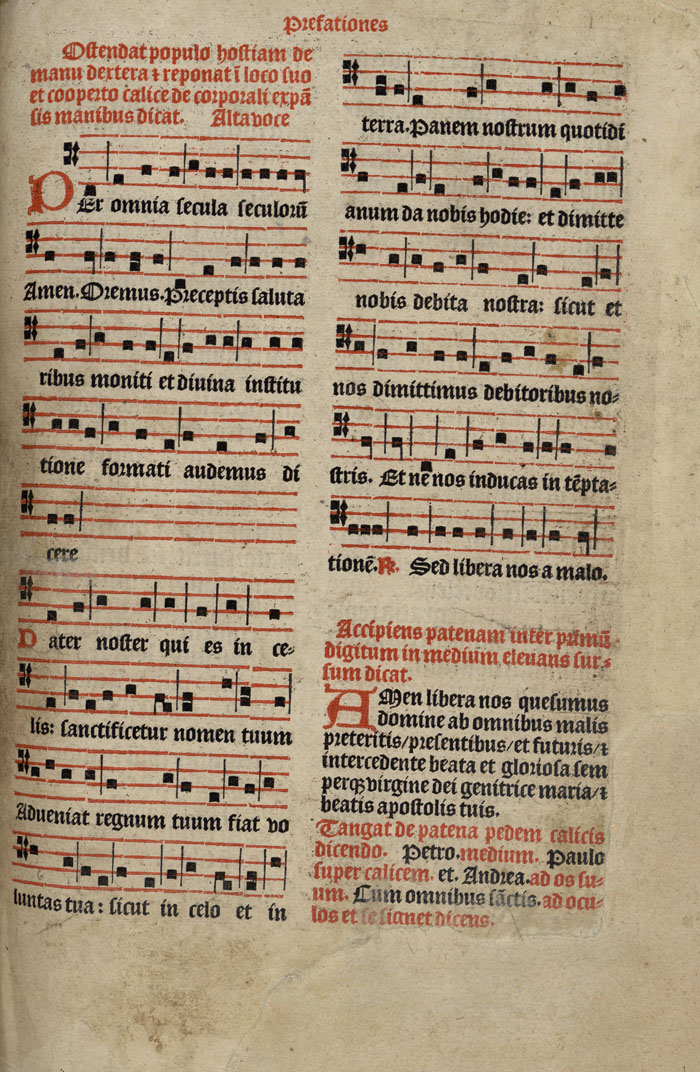 Prefationes
Ostendat populo hostiam de
manu dextera ⁊ reponat ī loco suo
et cooperto calice de corporali expā
sis manibus dicat. Alta voce
PEr omnia secula seculorū
Amen. Oremus. Preceptis saluta
ribus moniti et diuina institu
tione formati audemus di
cere
Pater noster qui es in ce⸗
lis: sanctificetur nomen tuum
Adueniat regnum tuum fiat vo
luntas tua: sicut in celo et in
terra. Panem nostrum quotidi
anum da nobis hodie: et dimitte
nobis debita nostra: sicut et
nos dimittimus debitoribus no⸗
stris. Et ne nos inducas in tēpta⸗
tionē. ℞. Sed libera nos a malo.
Accipiens patenam inter primū
digitum in medium eleuans sur⸗
sum dicat.
AMen libera nos quesumus
domine ab omnibus malis
preteritis/presentibus/et futuris/⁊
intercedente beata et gloriosa sem
perqꝫ virgine dei genitrice maria/⁊
beatis apostolis tuis.
Tangat de patena pedem calicis
dicendo. Petro. medium. Paulo
super calicem. et. Andrea. ad os su⸗
um. Cum omnibus sāctis. ad ocu⸗
los et se signet dicens.